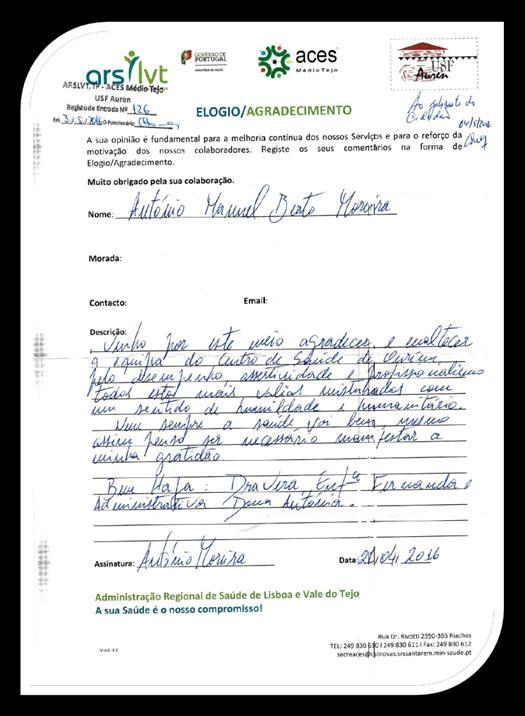 arslvt
GOVERNO DE
PORTUGAL
aces
Médio Tejo
USF
Auren
ARSLVT, IP - ACES Médio Tejo
USF Auren
Registo de Entrada Nº 126
Em 3/5/2016 O Funcionário
ELOGIO/AGRADECIMENTO
Ao
A sua opinião é fundamental para a melhoria contínua dos nossos Serviços e para o reforço da
motivação dos nossos colaboradores. Registe os seus comentários na forma de
Elogio/Agradecimento.
Muito obrigado pela sua colaboração.
Nome: António Manuel Bento Moreira
Morada:
Contacto: Email:
Descrição:
Venho por este meio agradecer e enaltecer
a equipa do Centro de Saúde de Ourém,
pelo desempenho assertividade e profissionalismo
todas estas mais valias misturadas com
um sentido de humildade e humanitário.
Nem sempre a saúde vai bem, mesmo
assim penso ser necessário manifestar a
minha gratidão.
Bem Haja: Dra Vera Enfª Fernanda e
Administrativa Dona Antónia.
Assinatura: António Moreira Data: 21/04/2016
Administração Regional de Saúde de Lisboa e Vale do Tejo
A sua Saúde é o nosso compromisso!
Rua Dr. Rivotti 2350-365 Riachos
TEL: 249 830 610 I 249 830 611 I Fax: 249 830 612